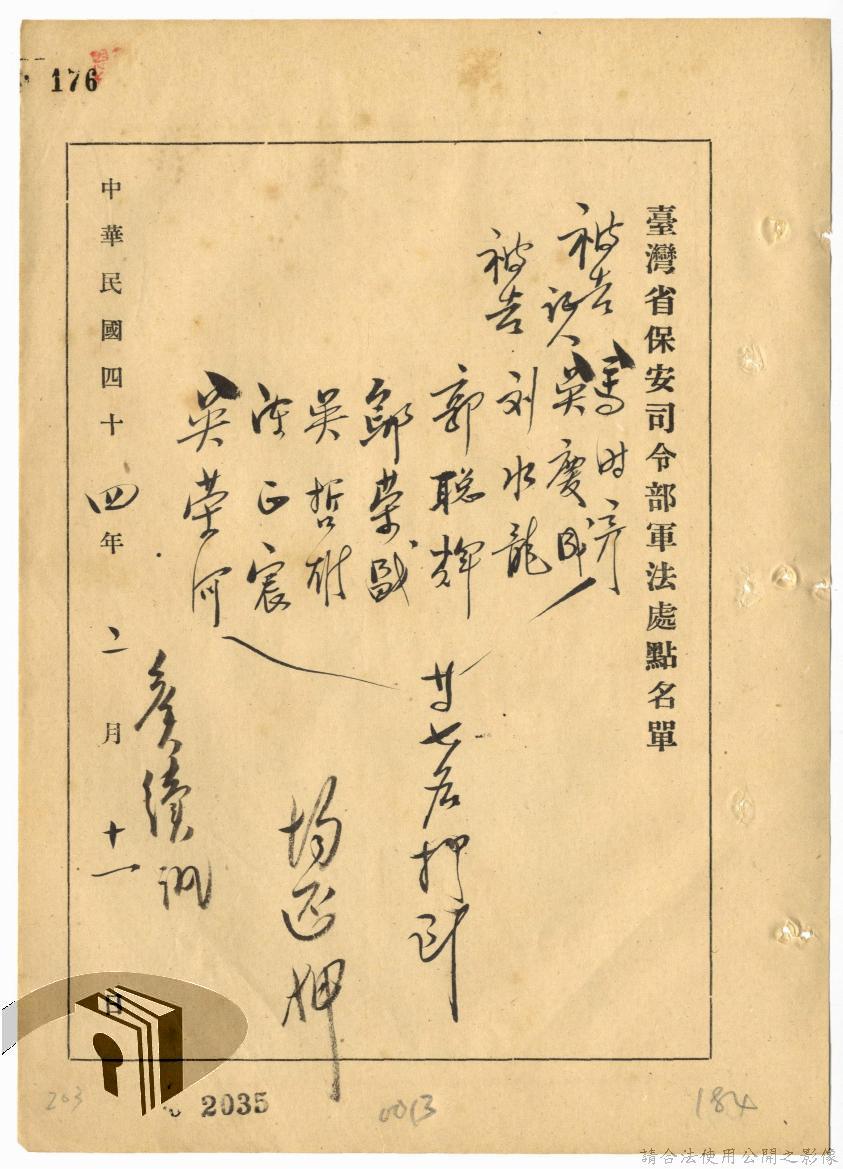 臺灣省保安司令部軍法處點名單
被告 馬时彥
証人 吳慶
被告 刘水龍
郭聪輝
鄭榮
吳哲
陳正宸
吳荣河
廿七名押
均还押
續訊
中華民國四十四年二月十一日
176
2035
0013
184
203
請合法使用公開之影像